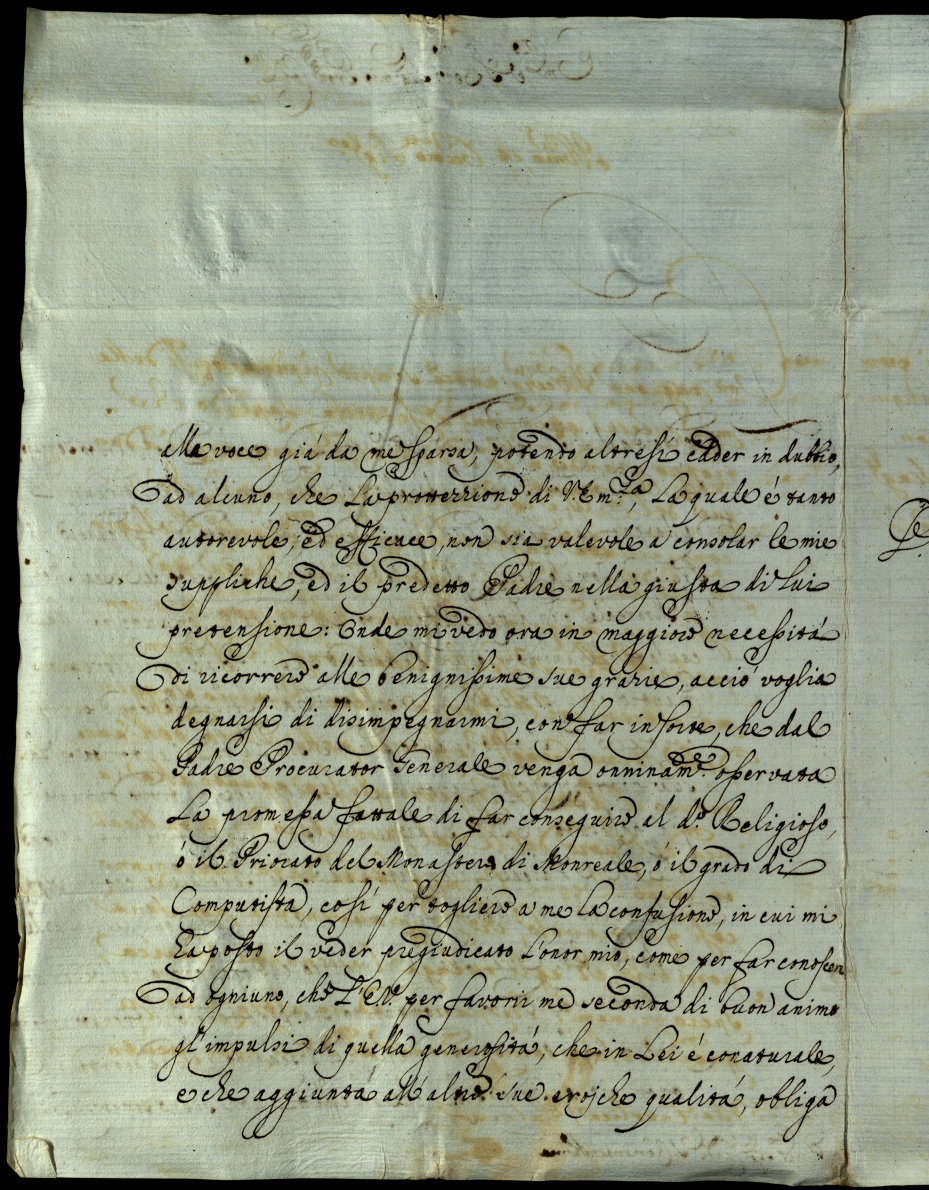 alla voce già da me sparsa, potendo altresì cader in dubbio,
ad alcuno, che La prottezzione di V. Em.za, La quale é tanto
autorevole, ed efficace, non sia valevole a consolar le mie
suppliche, ed il predetto Padre nella giusta di lui
pretensione: Onde mi vedo ora in maggiore necessitá
di ricorrere alle benignissime sue grazie, acció voglia
degnarsi di disimpegnarmi, con far in sorte, che dal
Padre Procurator Generale venga onninam.te osservata
La promessa fattale di far conseguire al d.o Religioso,
ó il Priorato del Monastero di Monreale, ó il grado di
Computista, cosí per togliere a me la confusione, in cui mi
ha posto il veder pregiudicato l'onor mio, come per far conoscere
ad ogniuno, che L'E.V. per favorir me seconda di buon animo
gl'impulsi di quella generositá, che in Lei é conaturale,
e che aggiunta all'altre sue erojche qualitá, obliga